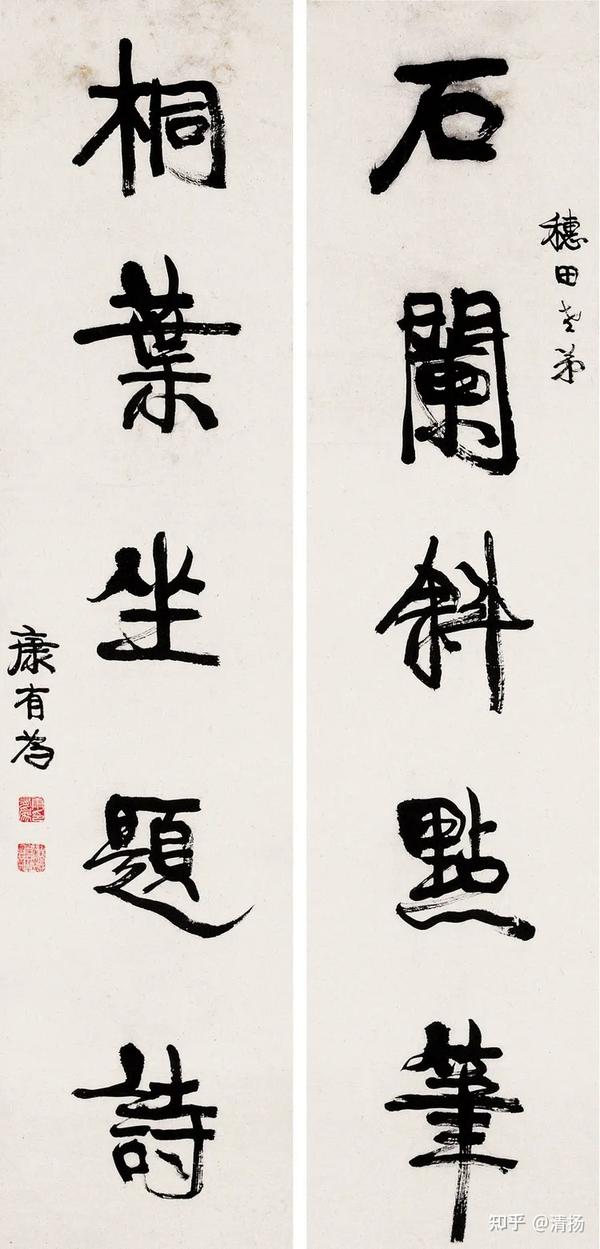 穗田老弟
石闌斜點筆
桐葉坐題詩
康有為
知乎 @清扬